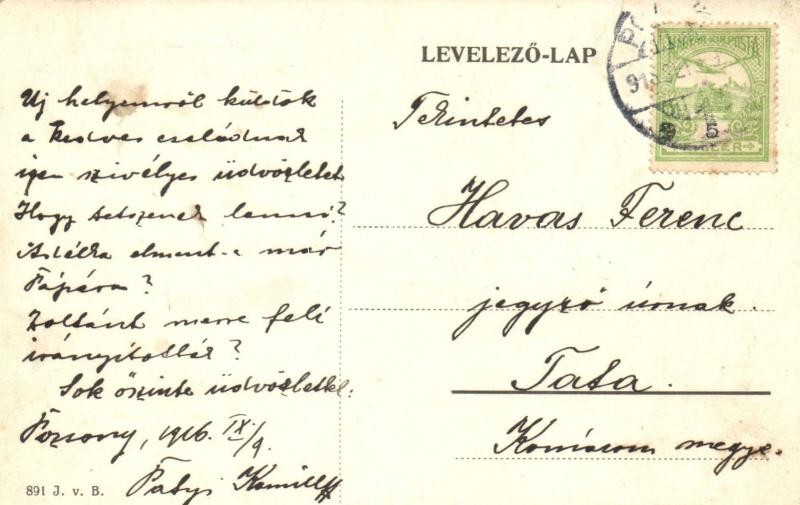 LEVELEZŐ-LAP
MAGYAR KIR. POSTA
5
Uj helyemről küldök
a kedves családnak
igen szivélyes üdvözletet
Hogy tetszenek lenni?
elment-e már
Pápára?
Zoltánt merre felé
irányították?
Sok őszinte üdvözlettel:
Pozsony, 1916. IX/9.
Kamill
Tekintetes
Havas Ferenc
jegyző úrnak.
Tata.
Komárom megye.
891 J. v. B.